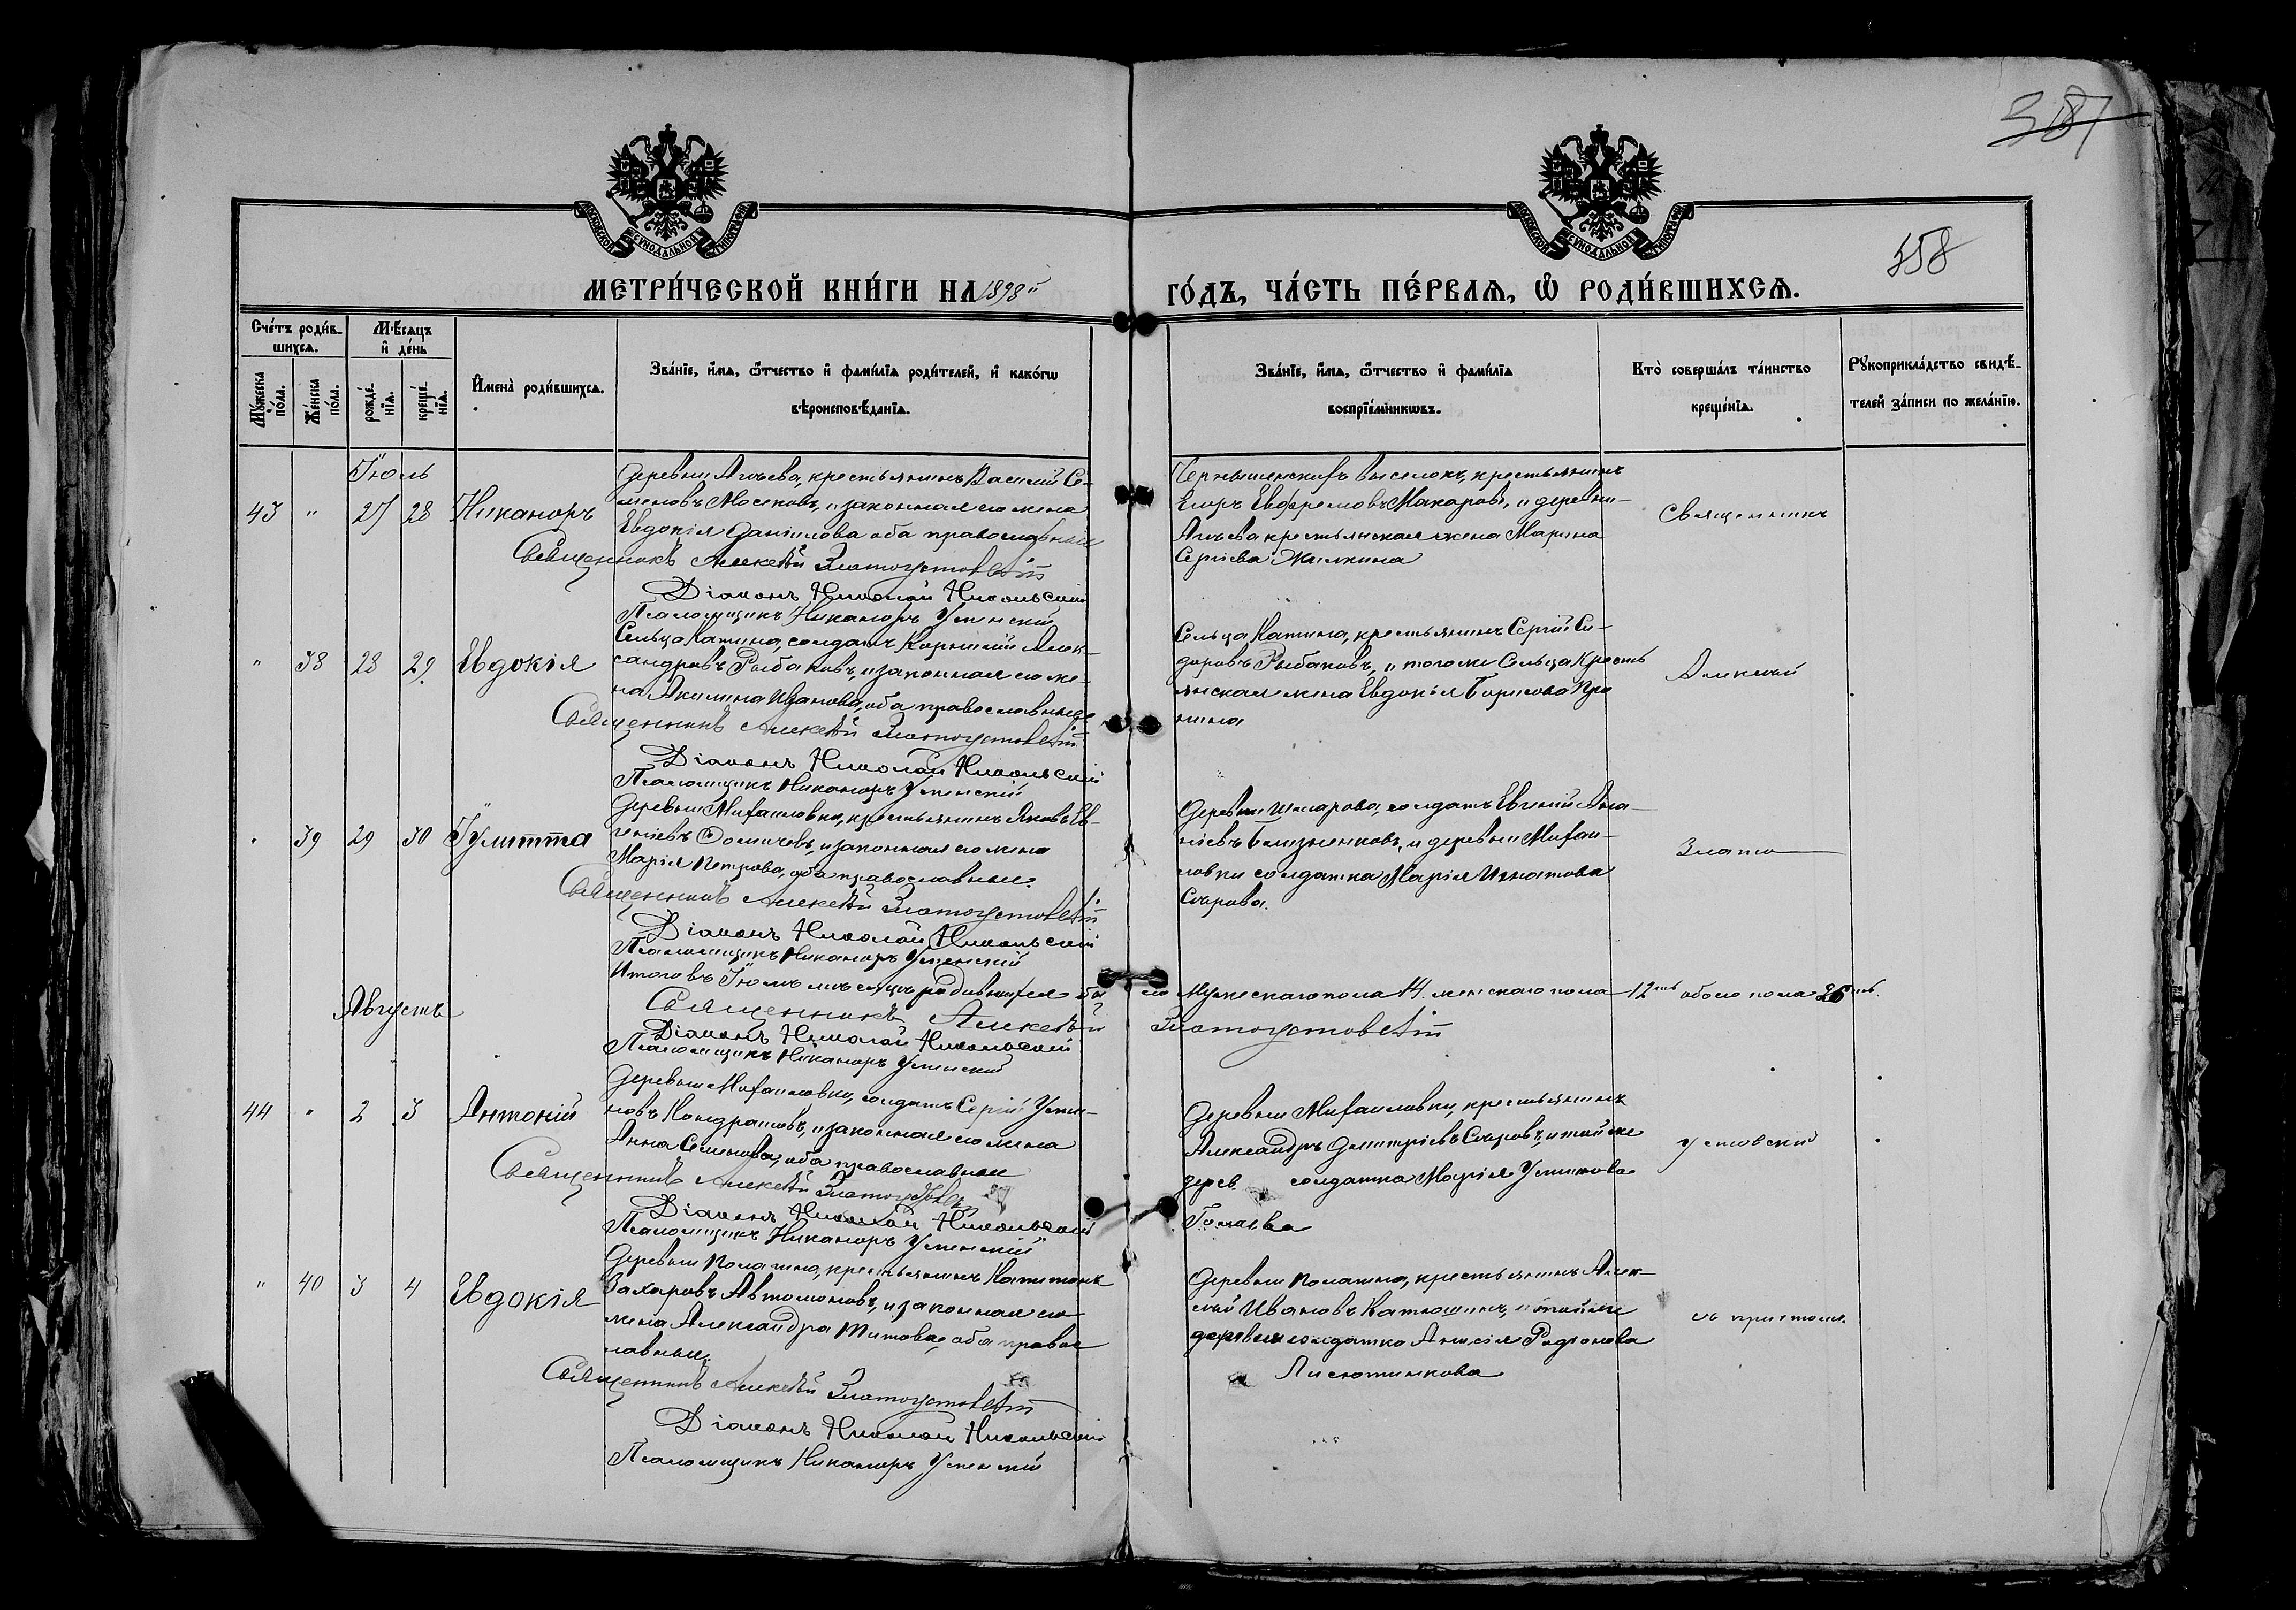 387
358
МОСКОВСКОЙ СѴНОДАЛЬНОЙ ТИПОГРАФІИ
МОСКОВСКОЙ СѴНОДАЛЬНОЙ ТИПОГРАФІИ
МЕТРИ́ЧЕСКОЙ КНИ́ГИ НА 1898й
ГО́ДЪ, ЧА́СТЬ ПЕ́РВАѦ, Ѡ РОДИ́ВШИХСѦ.
Сче́тъ роди́в-
шихсѧ.
Мѣ́сѧцъ
и҆ де́нь
Мꙋ́жеска по́ла.
Же́нска по́ла.
рожде́-нїѧ.
креще́-нїѧ.
И҆мена̀ роди́вшихсѧ.
Зва́нїе, и҆́мѧ, ѻ҆́тчество и҆ фами́лїѧ роди́телей, и҆ како́гѡ
вѣроисповѣ́данїѧ.
Зва́нїе, и҆́мѧ, ѻ҆́тчество и҆ фами́лїѧ
воспрїе́мникѡвъ.
Кто̀ соверша́лъ та́инство
креще́нїѧ.
Рꙋкоприкла́дство свидѣ́-
телей за́писи по жела́нїю.
Іюль
43 " 27 28 Никаноръ
деревни Агъева, крестьянинъ Василій Се-
меновъ Мосяковъ, и законная его жена
Евдокія Даніилова оба православные
Священникъ Алексѣй Златоустовскій
Діаконъ Николай Никольскій
Псаломщикъ Никаноръ Успенскій
выселокъ, крестьянинъ
Егоръ Евфремовъ Макаровъ, и деревни
Агъева крестьянская жена Марина
Сергіева Жилкина
Священникъ
" 38 28 29 Евдокія
Сельца Катина, солдатъ Корнилій Алек-
сандровъ Рыбаковъ, и законная его же-
на Акилина Иванова, оба православные
Священникъ Алексѣй Златоустовскій
Діаконъ Николай Никольскій
Псаломщикъ Никаноръ Успенскій
Сельца Катина, крестьянинъ Сергій Си-
доровъ Рыбаковъ, и того же Сельца кресть
янская жена Евдокія Борисова Про
нина
Алексѣй
" 39 29 30 Іулитта
Деревни Михаиловки, крестьянинъ Яковъ Ев-
геніевъ Ѳомичевъ, и законная его жена
Марія Петрова, оба православные.
Священникъ Алексѣй Златоустовскій
Діаконъ Николай Никольскій
Псаломщикъ Никаноръ Успенскій
Деревни солдатъ Евгеній Ана-
ніевъ Близненковъ, и деревни Михаи-
ловки солдатка Марія Игнатова
Сѣрова.
Злато
Итого въ Іюлѣ мѣсяцѣ родившихся бы
ло мужескаго пола 14. женскаго пола 12ть обоего пола 26ть.
Священникъ Алексѣй
Златоустовскій
Діаконъ Николай Никольскій
Псаломщикъ Никаноръ Успенскій
Августъ
44 " 2 3 Антоній
Деревни Михаиловки, солдатъ Сергій Усти-
новъ Кондрашовъ, и законная его жена
Анна Семенова, оба православные
Священникъ Алексѣй Златоустовскій
Діаконъ Николай Никольскій
Псаломщикъ Никаноръ Успенскій
Деревни Михаиловки, крестьянинъ
Александръ Димитріевъ Сѣровъ, и той же
дерев. солдатка Марія Устинова
устовскій
" 40 3 4 Евдокія
Деревни Полатина, крестьянинъ Капитонъ
Захаровъ Автомоновъ, и законная его
жена Александра Титова, оба право
лавные.
Священникъ Алексѣй Златоустовскій
Діаконъ Николай Никольскій
Псаломщикъ Никаноръ Успенскій
Деревни Полатина, крестьянинъ Алек-
сѣй Ивановъ Катюшинъ, и той же
деревни солдатка Анисія Родіонова
Лисютинкова
съ притом.